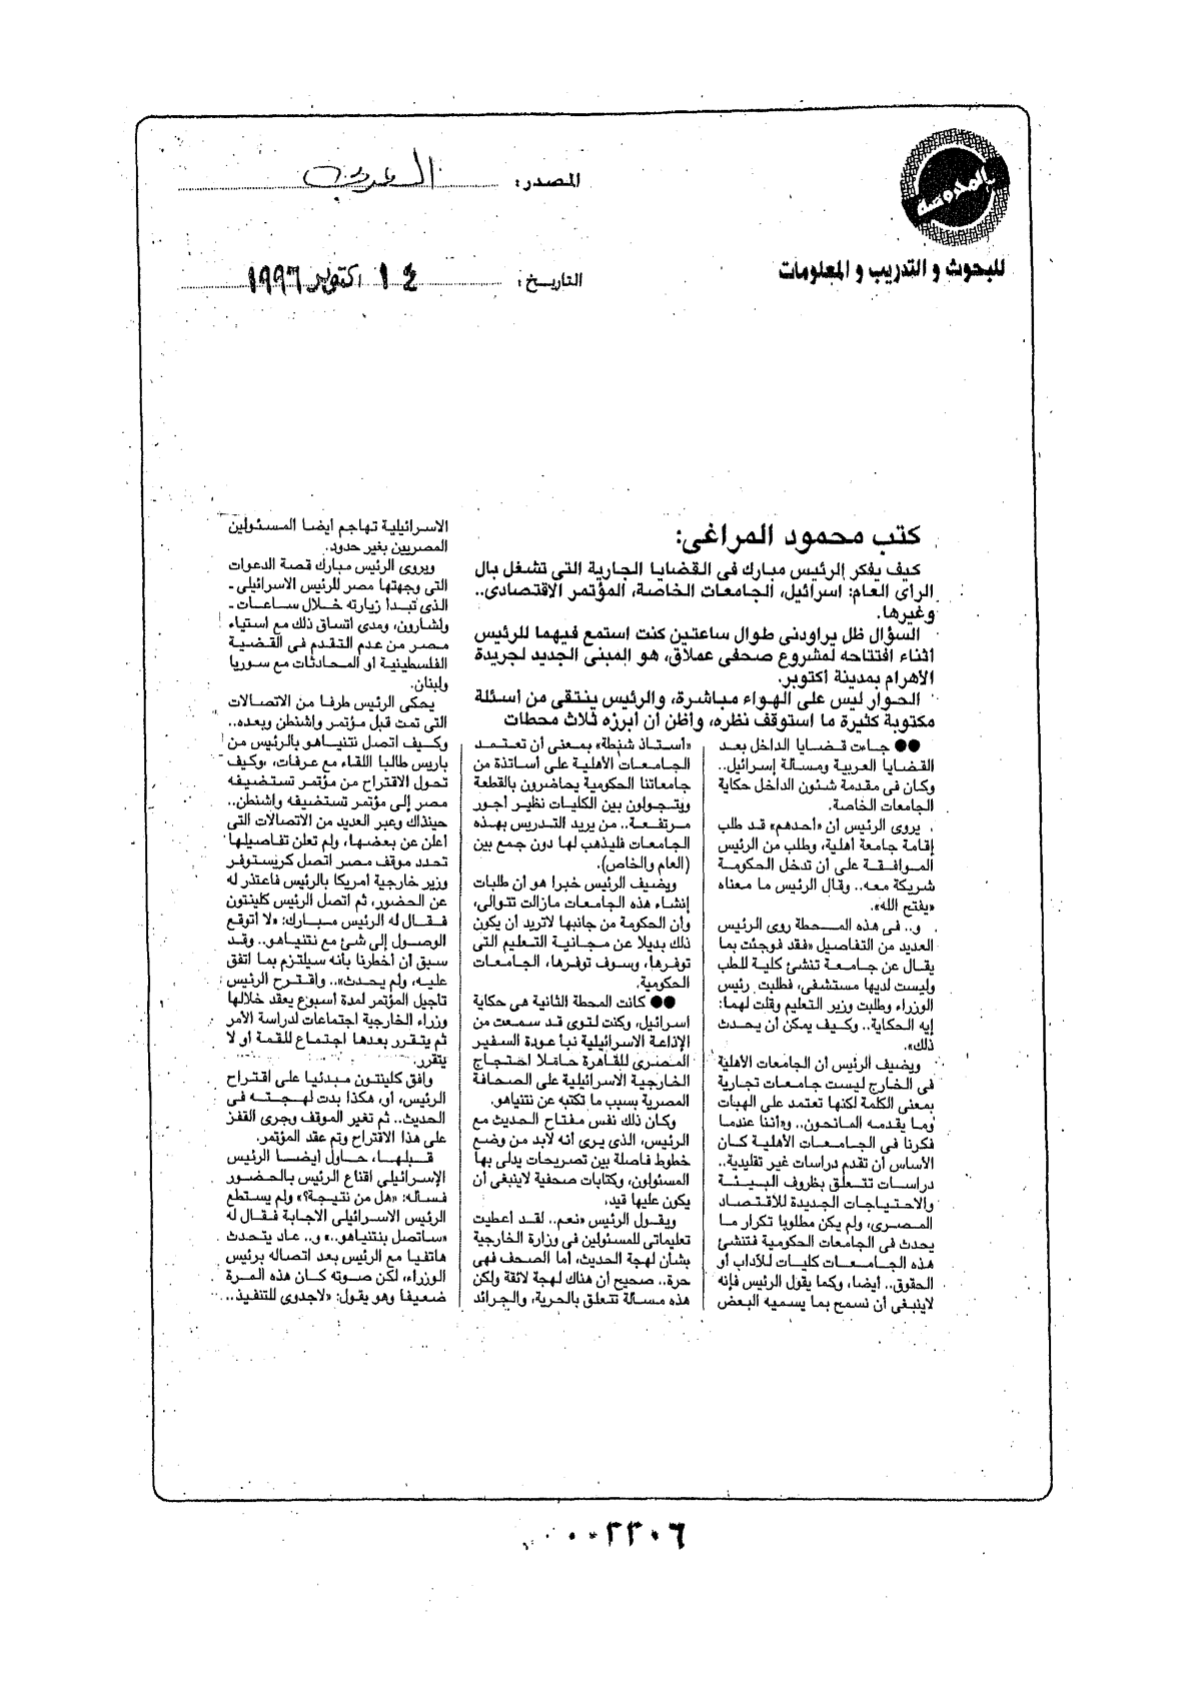 المحروسة
للبحوث و التدريب و المعلومات
المصدر: العربى
التاريخ: ١٤ اكتوبر ١٩٩٦
كتب محمود المراغى:
كيف يفكر الرئيس مبارك فى القضايا الجارية التى تشغل بال
الرأى العام: اسرائيل، الجامعات الخاصة، المؤتمر الاقتصادى..
وغيرها.
السؤال ظل يراودنى طوال ساعتين كنت استمع فيهما للرئيس
أثناء افتتاحه لمشروع صحفى عملاق، هو المبنى الجديد لجريدة
الأهرام بمدينة اكتوبر.
الحوار ليس على الهواء مباشرة، والرئيس ينتقى من أسئلة
مكتوبة كثيرة ما استوقف نظره، وأظن أن أبرزه ثلاث محطات
●● جاءت قضايا الداخل بعد
القضايا العربية ومسألة إسرائيل..
وكان فى مقدمة شئون الداخل حكاية
الجامعات الخاصة.
يروى الرئيس أن «أحدهم» قد طلب
إقامة جامعة أهلية، وطلب من الرئيس
الموافقة على أن تدخل الحكومة
شريكة معه.. وقال الرئيس ما معناه
«يفتح الله».
و.. فى هذه المحطة روى الرئيس
العديد من التفاصيل «فقد فوجئت بما
يقال عن جامعة تنشئ كلية للطب
وليست لديها مستشفى، فطلبت رئيس
الوزراء وطلبت وزير التعليم وقلت لهما:
إيه الحكاية.. وكيف يمكن أن يحدث
ذلك».
ويضيف الرئيس أن الجامعات الأهلية
فى الخارج ليست جامعات تجارية
بمعنى الكلمة لكنها تعتمد على الهبات
وما يقدمه المانحون.. و«أننا عندما
فكرنا فى الجامعات الأهلية كان
الأساس أن تقدم دراسات غير تقليدية..
دراسات تتعلق بظروف البيئة
والاحتياجات الجديدة للاقتصاد
المصرى، ولم يكن مطلوبا تكرار ما
يحدث فى الجامعات الحكومية فتنشئ
هذه الجامعات كليات للآداب أو
الحقوق.. أيضا، وكما يقول الرئيس فإنه
لاينبغى أن نسمح بما يسميه البعض
«أستاذ شنطة» بمعنى أن تعتمد
الجامعات الأهلية على أساتذة من
جامعاتنا الحكومية يحاضرون بالقطعة
ويتجولون بين الكليات نظير أجور
مرتفعة.. من يريد التدريس بهذه
الجامعات فليذهب لها دون جمع بين
(العام والخاص).
ويضيف الرئيس خبرا هو أن طلبات
إنشاء هذه الجامعات مازالت تتوالى،
وأن الحكومة من جانبها لاتريد أن يكون
ذلك بديلا عن مجانية التعليم التى
توفرها، وسوف توفرها، الجامعات
الحكومية.
●● كانت المحطة الثانية هى حكاية
اسرائيل، وكنت لتوى قد سمعت من
الإذاعة الاسرائيلية نبأ عودة السفير
المصرى للقاهرة حاملا احتجاج
الخارجية الاسرائيلية على الصحافة
المصرية بسبب ما تكتبه عن نتنياهو.
وكان ذلك نفس مفتاح الحديث مع
الرئيس، الذى يرى أنه لابد من وضع
خطوط فاصلة بين تصريحات يدلى بها
المسئولون، وكتابات صحفية لاينبغى أن
يكون عليها قيد.
ويقول الرئيس «نعم.. لقد أعطيت
تعليماتى للمسئولين فى وزارة الخارجية
بشأن لهجة الحديث، أما الصحف فهى
حرة.. صحيح أن هناك لهجة لائقة ولكن
هذه مسألة تتعلق بالحرية، والجرائد
الاسرائيلية تهاجم أيضا المسئولين
المصريين بغير حدود.
ويروى الرئيس مبارك قصة الدعوات
التى وجهتها مصر للرئيس الاسرائيلى ـ
الذى تبدأ زيارته خلال ساعات ـ
ولشارون، ومدى اتساق ذلك مع استياء
مصر من عدم التقدم فى القضية
الفلسطينية أو المحادثات مع سوريا
ولبنان.
يحكى الرئيس طرفا من الاتصالات
التى تمت قبل مؤتمر واشنطن وبعده..
وكيف اتصل نتنياهو بالرئيس من
باريس طالبا اللقاء مع عرفات، وكيف
تحول الاقتراح من مؤتمر تستضيفه
مصر إلى مؤتمر تستضيفه واشنطن..
حينذاك وعبر العديد من الاتصالات التى
أعلن عن بعضها، ولم تعلن تفاصيلها
تحدد موقف مصر اتصل كريستوفر
وزير خارجية أمريكا بالرئيس فاعتذر له
عن الحضور، ثم اتصل الرئيس كلينتون
فقال له الرئيس مبارك: «لا أتوقع
الوصول إلى شئ مع نتنياهو.. وقد
سبق أن أخطرنا بأنه سيلتزم بما اتفق
عليه، ولم يحدث».. واقترح الرئيس
تأجيل المؤتمر لمدة أسبوع يعقد خلالها
وزراء الخارجية اجتماعات لدراسة الأمر
ثم يتقرر بعدها اجتماع للقمة أو لا
يتقرر.
وافق كلينتون مبدئيا على اقتراح
الرئيس، أو، هكذا بدت لهجته فى
الحديث.. ثم تغير الموقف وجرى القفز
على هذا الاقتراح وتم عقد المؤتمر.
قبلها، حاول أيضا الرئيس
الإسرائيلى اقناع الرئيس بالحضور
فسأله: «هل من نتيجة؟» ولم يستطع
الرئيس الاسرائيلى الاجابة فقال له
«سأتصل بنتنياهو..» و.. عاد يتحدث
هاتفيا مع الرئيس بعد اتصاله برئيس
الوزراء، لكن صوته كان هذه المرة
ضعيفا وهو يقول: «لاجدوى للتنفيذ..
٠٠٠٢٢٠٦